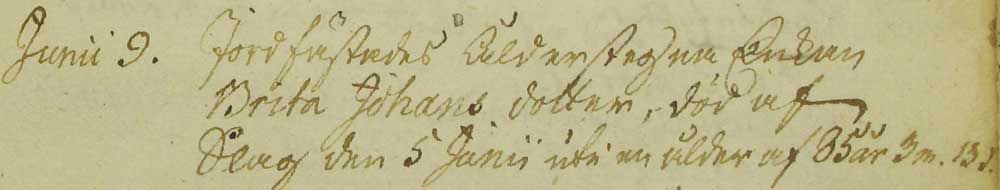 Junii 9. Jordfästades Ålderstegna Enkan
Brita Johans dotter, död af
Slag den 5 Junii uti en ålder af 85 år 3 m. 13 d.